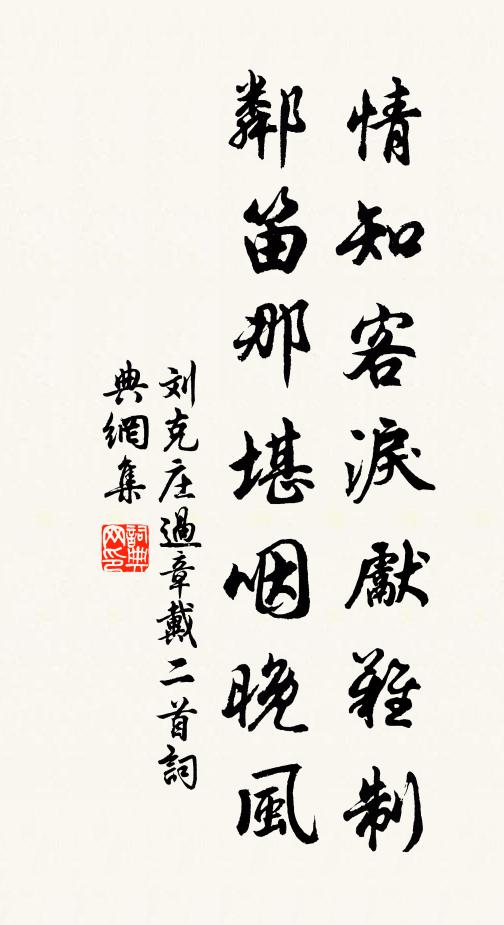 情知客淚獻難制
鄰笛那堪咽晚風
刘克庄過章戴二首詞
典網集
詞典網印